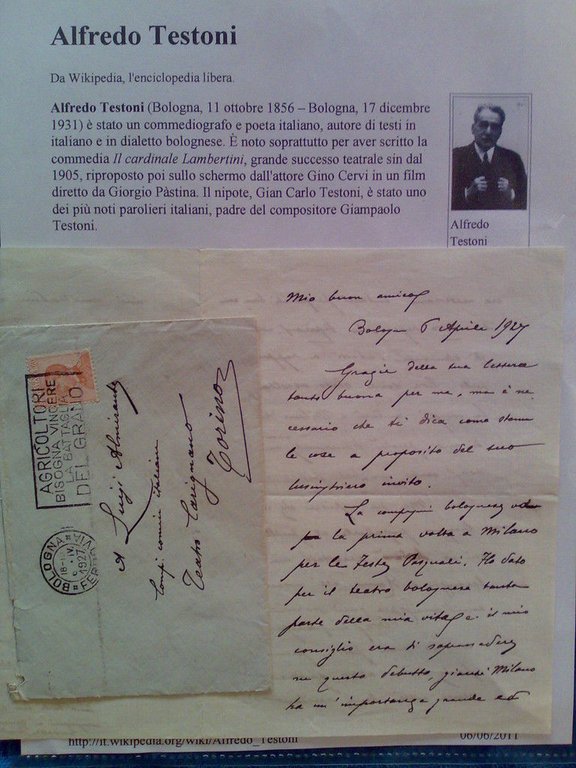 Alfredo Testoni
Da Wikipedia, l'enciclopedia libera.
Alfredo Testoni (Bologna, 11 ottobre 1856 – Bologna, 17 dicembre
1931) è stato un commediografo e poeta italiano, autore di testi in
italiano e in dialetto bolognese. È noto soprattutto per aver scritto la
commedia Il cardinale Lambertini, grande successo teatrale sin dal
1905, riproposto poi sullo schermo dall'attore Gino Cervi in un film
diretto da Giorgio Pàstina. Il nipote, Gian Carlo Testoni, è stato uno
dei più noti parolieri italiani, padre del compositore Giampaolo
Testoni.
Alfredo
Testoni
Mio buon amico
Bologna 6 Aprile 1927
Grazie della tua lettera
tanto buona per me, ma è ne-
cessario che ti dica come stanno
le cose a proposito del tuo
lusinghiero invito.
La compagnia bolognese
la prima volta a Milano
per le Feste Pasquali. Ho dato
per il teatro bolognese tanta
parte della mia vita e il mio
consiglio era di soprassedere
su questo debutto, giacché Milano
ha un'importanza grande ed
AGRICOLTORI
BISOGNA VINCERE
LA BATTAGLIA
DEL GRANO
BOLOGNA
18- IV
1927
FERROVIA
A Luigi Almirante
Comp. comica italiana
Teatro Carignano
Torino
http://it.wikipedia.org/wiki/Alfredo_Testoni
06/06/2011